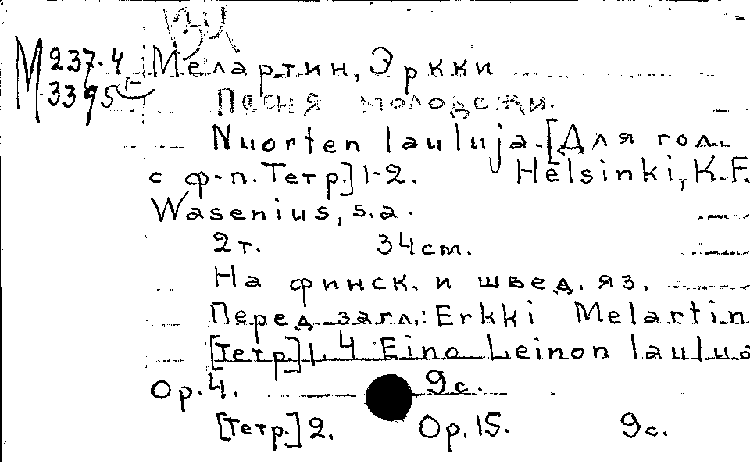 М 237.4 Мелартин, Эркки
3395
Песня молодежи.
Nuorten lauluja. [Для гол.
с ф-п. Тетр.] 1-2. Helsinki, K.F.
Wasenius, s.a.
2 т. 34 cm.
На финск. и швед. яз.
Перед загл.: Erkki Melartin
[Тетр.] 1. 4 Eino Leinon laulua
Op. 4. 9 с.
[Тетр.] 2. Op. 15. 9 с.